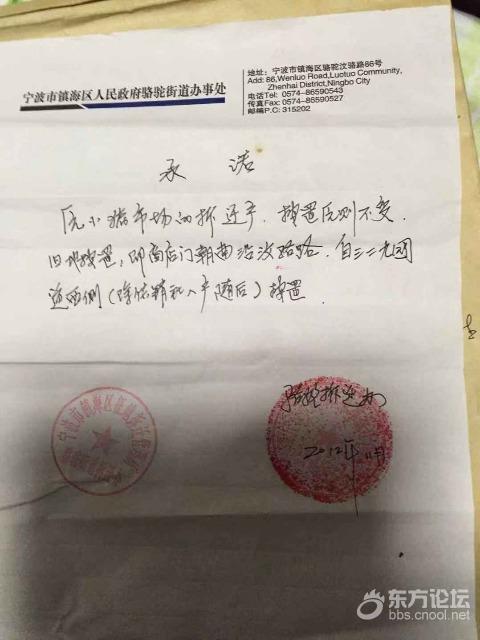 宁波市镇海区人民政府骆驼街道办事处
地址：宁波市镇海区骆驼汶骆路86号
Add: 86,Wenluo Road,Luotuo Community,
Zhenhai District,Ningbo City
电话Tel: 0574-86590543
传真Fax: 0574-86590527
邮编P.C: 315202
承诺
原小猪市场的拆迁户，按置原则不变，
旧地按置，即商店门朝南沿汶骆路，自
道西侧（除依赖和入户随后）按置
骆驼拆迁办
2012年
东方论坛
bbs.cnool.net